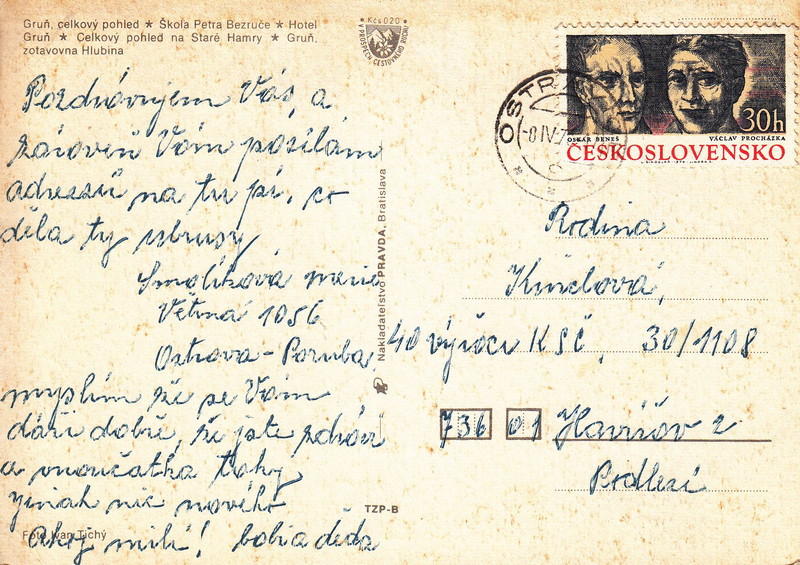 Gruň, celkový pohled ★ Škola Petra Bezruče ★ Hotel
Gruň ★ Celkový pohled na Staré Hamry ★ Gruň,
zotavovna Hlubina
Kčs 020
V PROSPĚCH CESTOVNÉHO RUCHU
OSTRA
-8 IV.7
30h
OSKAR BENEŠ
VÁCLAV PROCHÁZKA
ČESKOSLOVENSKO
Pozdravujem Vás, a
zároveň Vám posílám
adressu na tu pí, co
děla ty ubrusy
Smolíková Marie
Větrná 1056
Ostrova-Poruba,
myslím že se Vám
dáří dobře, že jste zdrávi
a vnoučátka taky
jinak nic nového
Ahoj milí! babi a děda
Foto Ivan Tichý
Nakladatelství PRAVDA, Bratislava
TZP-B
Rodina
40 výročí KSČ, 30/1108
736 01 Havířov 2
Podlesí